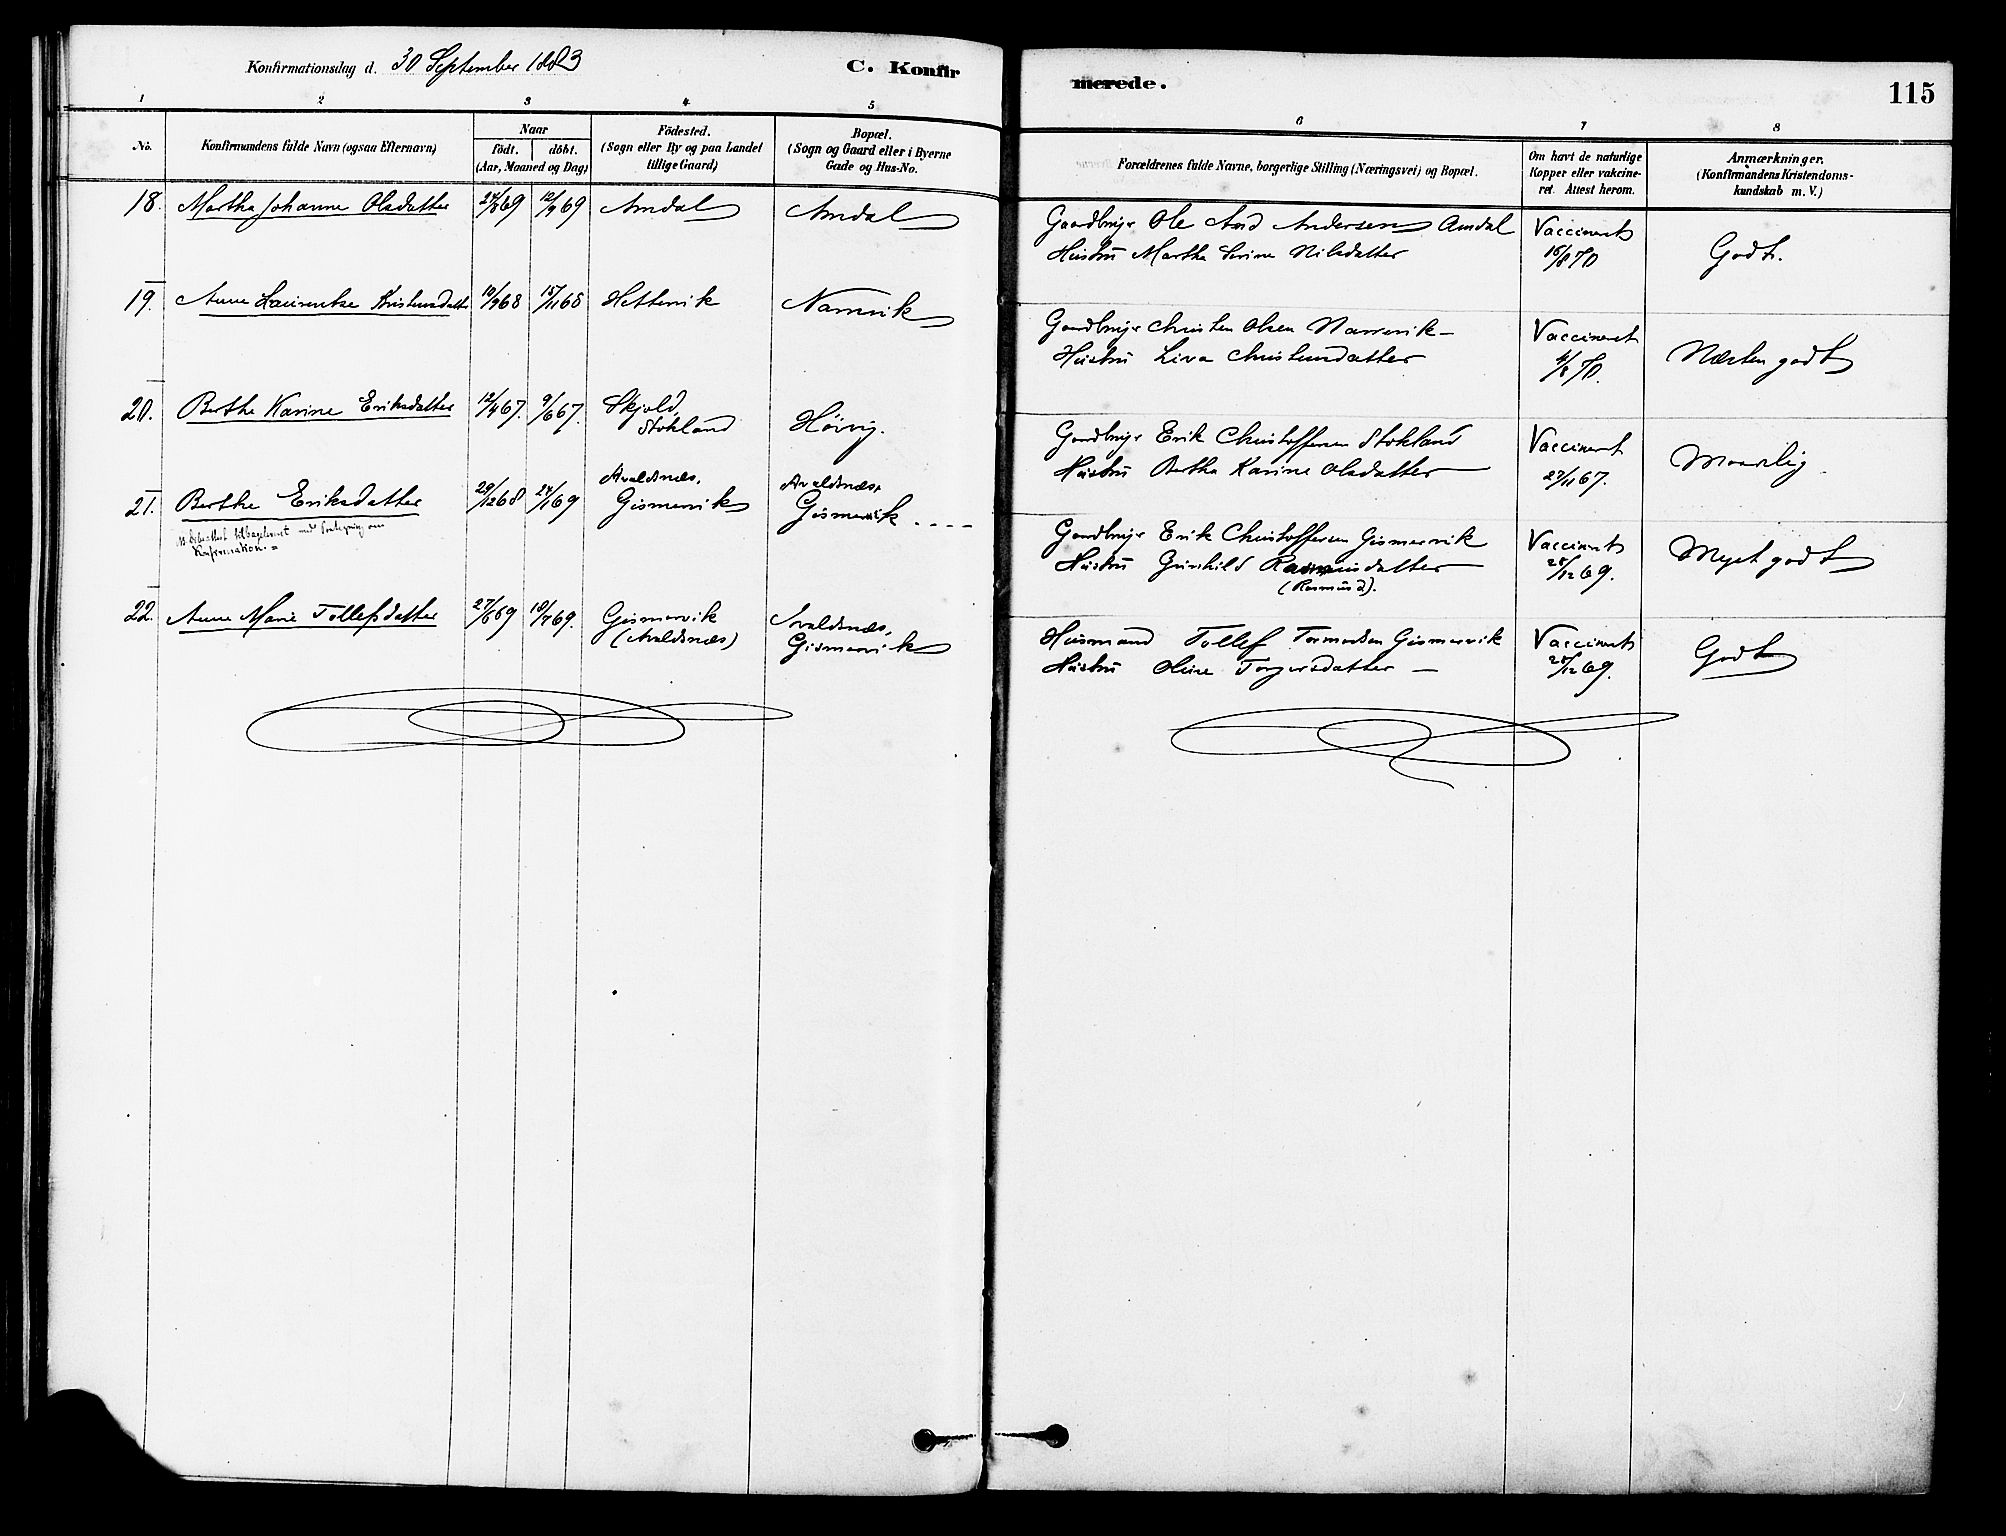 Konfirmationsdag d. 30 September 1883
C. Konfirmerede.
115
1 2 3 4 5 6 7 8
No.
Konfirmandens fulde Navn (ogsaa Efternavn)
Naar
födt. döbt.
(Aar, Maaned og Dag)
Födested.
(Sogn eller By og paa Landet
tillige Gaard)
Bopæl.
(Sogn og Gaard eller i Byerne
Gade og Hus-No.
Forældrenes fulde Navne, borgerlige Stilling (Næringsvei) og Bopæl.
Om havt de naturlige
Kopper eller vakcine-
ret. Attest herom.
Anmærkninger.
(Konfirmandens Kristendoms-
kundskab m. V.)
18. Martha Johanne Olsdatter 24/8 69 12/9 69 Amdal Amdal
Gaardbrugr Ole Aad Andersen Amdal Vaccineret
Hustru Martha Serine Nilsdatter 16/8 70 Godt.
19. Anne Laurentse Kristensdatter 10/9 68 15/11 68 Hettervik Narrevik
Gaardbrugr Christen Olsen Narrevik – Vaccineret
Hustru Liva Christensdatter 4/8 70. Næsten godt
20. Berthe Karine Eriksdatter 12/4 67. 9/6 67. Skjold, Stokland Høivig.
Gaardbrugr Erik Christoffersen Stokland Vaccineret
Hustru Bertha Karine Olsdatter – 27/11 67. Maadelig
21. Berthe Eriksdatter 29/12 68 24/1 69 Avaldsnæs, Gismervik Avaldsnæs, Gismervik
tilbageleveret med Paategning om
Konfirmation. =
Gaardbrugr Erik Christoffersen Gismervik Vaccineret
Hustru Gunhild Rasmusdatter – 28/12 69. Meget godt
(Rasmusd).
22. Anne Marie Tollefsdatter 27/6 69 18/7 69. Gismervik (Avaldsnæs) Avaldsnæs, Gismervik
Husmand Tollef Tormodsen Gismervik Vaccineret
Hustru Oline Torgersdatter – 28/12 69. Godt